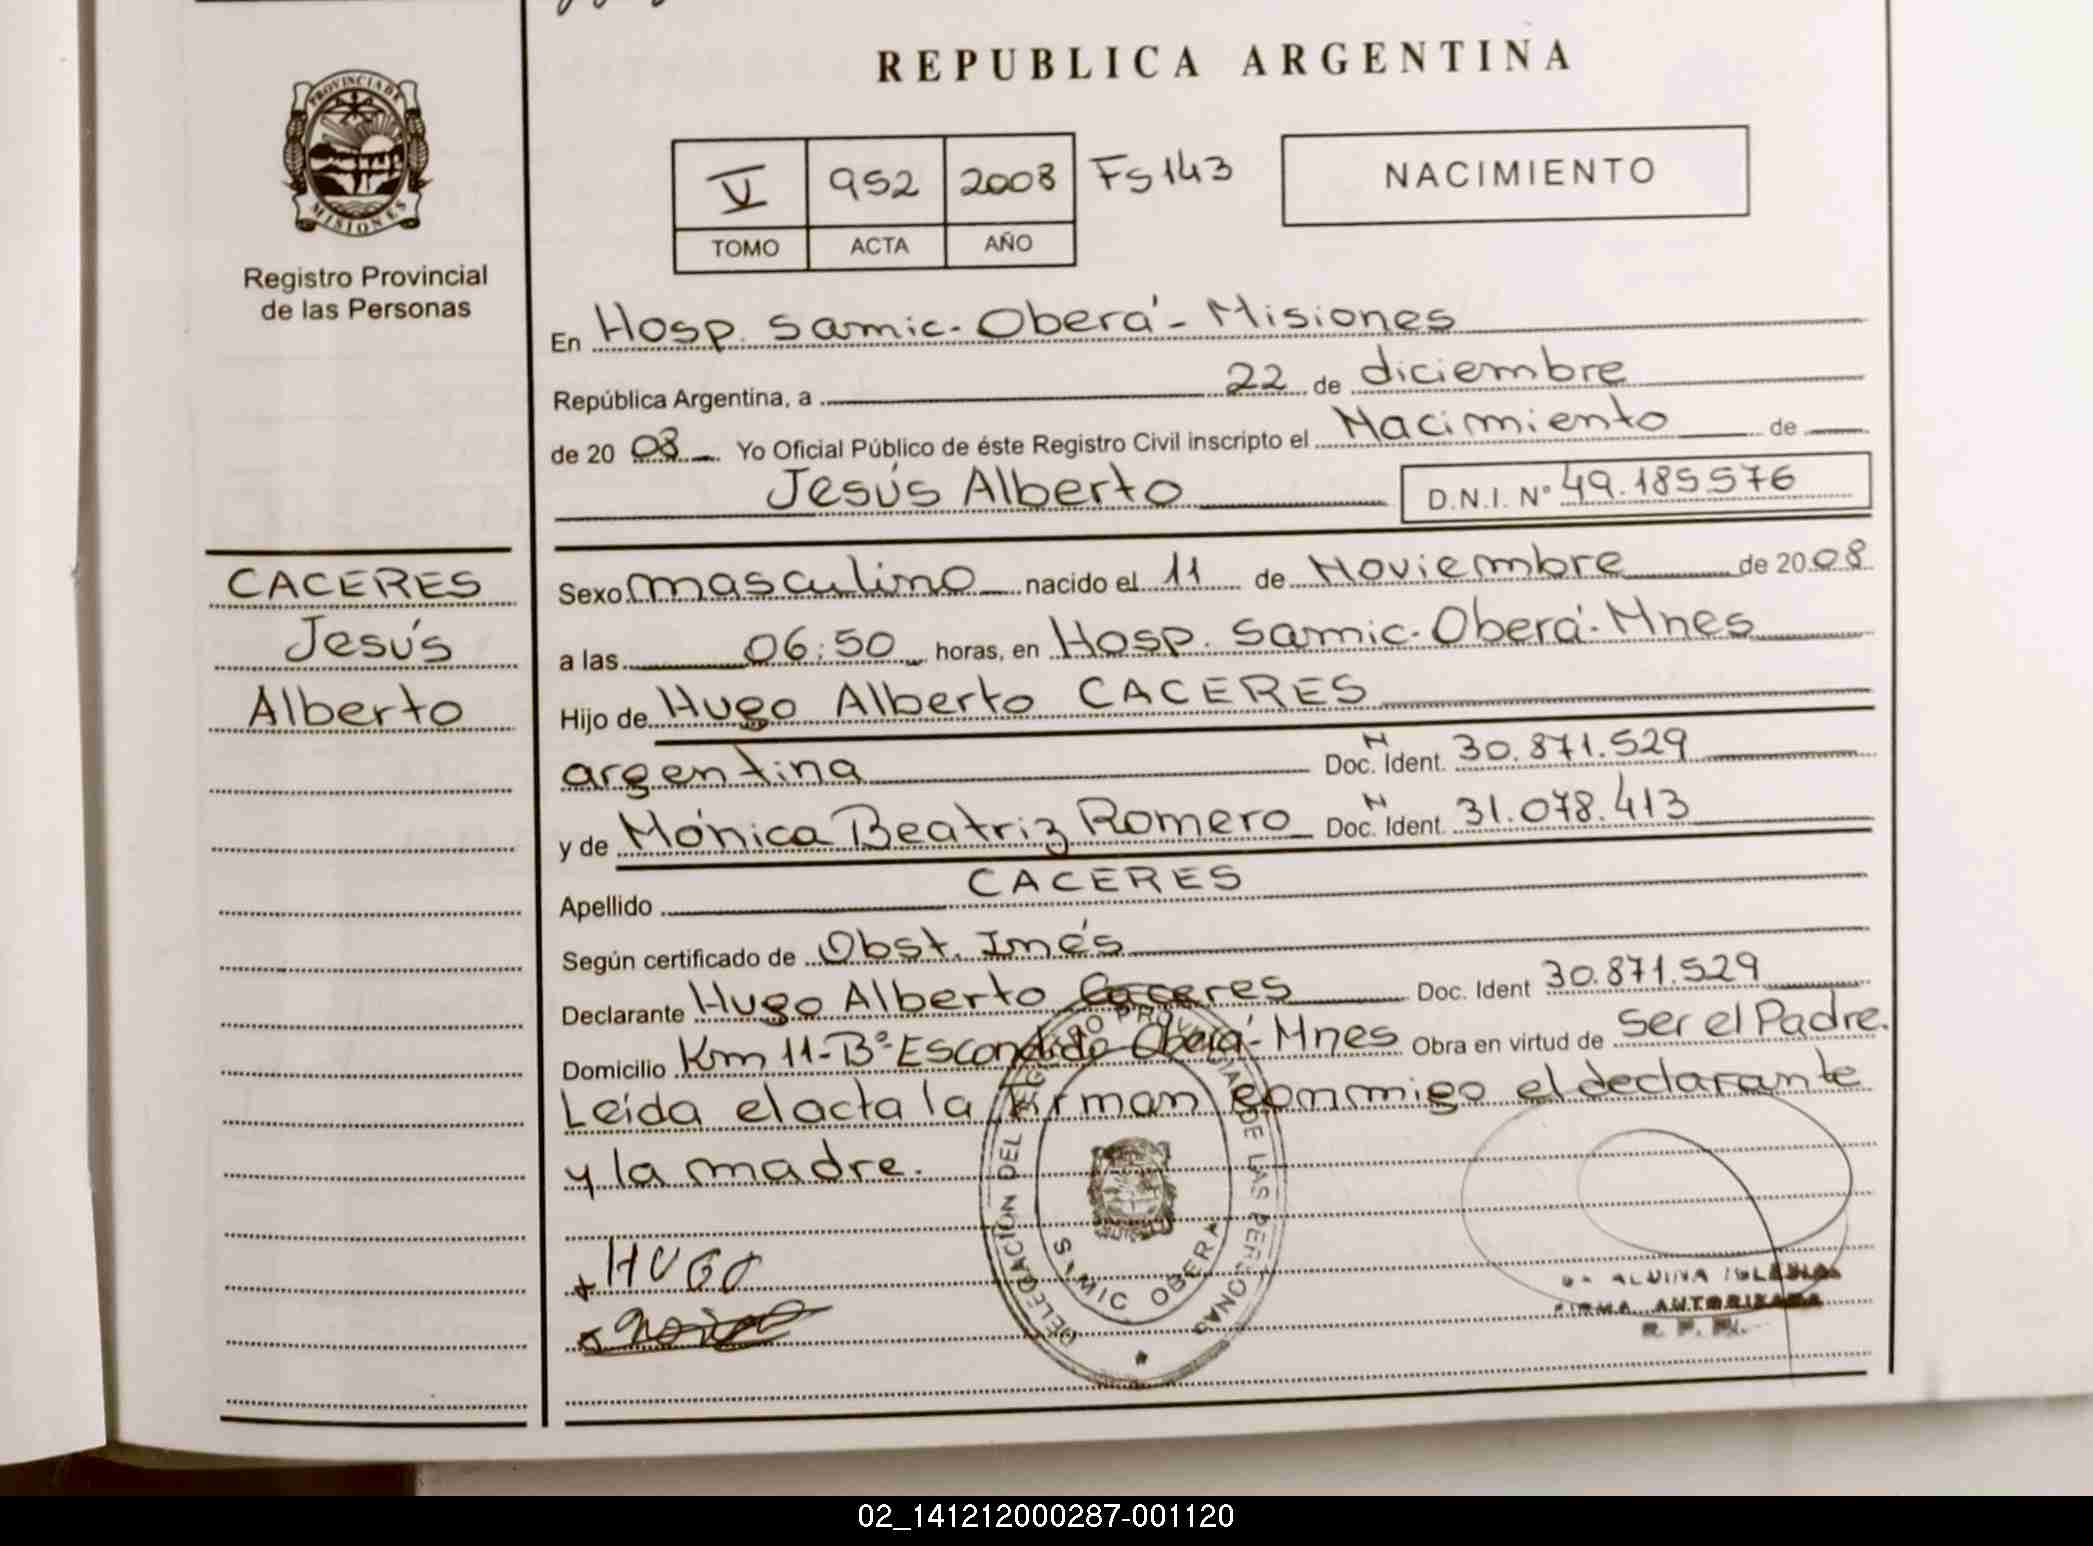 REPUBLICA ARGENTINA
PROVINCIA DE
MISIONES
Registro Provincial
de las Personas
V 952 2008 Fs 143
TOMO ACTA AÑO
NACIMIENTO
En Hosp. Samic - Oberá - Misiones
República Argentina, a 22 de diciembre
de 20 08 Yo Oficial Público de éste Registro Civil inscripto el Nacimiento de
Jesús Alberto D.N.I. N° 49.185576
CACERES
Jesús
Alberto
Sexo masculino nacido el 11 de Noviembre de 20 08
a las 06:50 horas, en Hosp. Samic - Oberá - Mnes
Hijo de Hugo Alberto CACERES
argentina Doc. N Ident. 30.871.529
y de Mónica Beatriz Romero Doc. N Ident. 31.078.413
Apellido CACERES
Según certificado de Obst. Inés
Declarante Hugo Alberto Caceres Doc. Ident 30.871.529
Domicilio Km 11 - B° Escondido Oberá - Mnes Obra en virtud de Ser el Padre.
Leída el acta la firman conmigo el declarante
y la madre.
HUGO
DELEGACIÓN DEL REGISTRO PROVINCIAL DE LAS PERSONAS
SAMIC OBERA
ALVINA IGLESIAS
FIRMA AUTORIZADA
R. P. P.
02_141212000287-001120